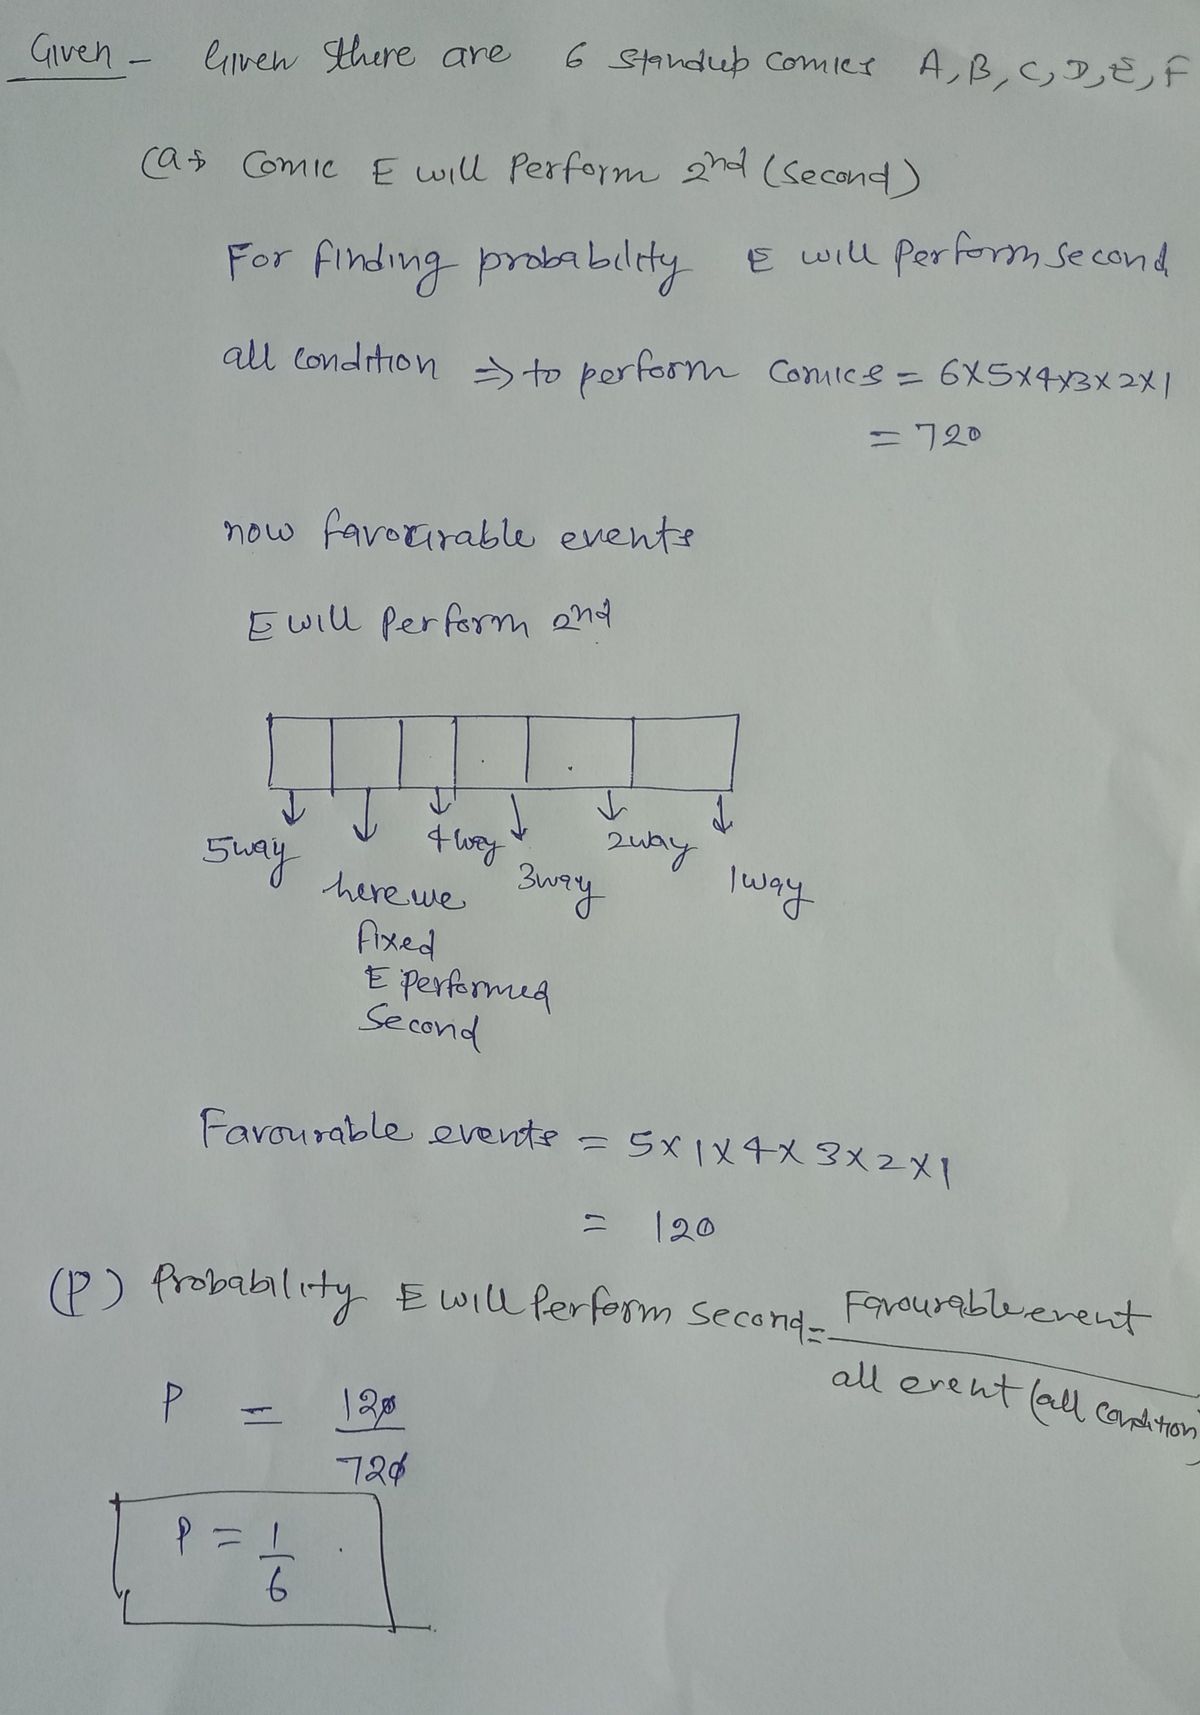 Given - Given there are 6 standup comics A, B, C, D, E, F
(a) Comic E will Perform 2nd (Second)
For finding probability E will Perform second
all condition ⇒ to perform comics = 6X5X4X3X2X1
= 720
now favourable events
E will Perform 2nd
5way 4way 2way
here we 3way 1way
fixed
E performed
Second
Favourable events = 5X1X4X3X2X1
= 120
(P) Probability E will Perform second = Favourable event
all event (all condition)
P = 120
720
P = 1
6